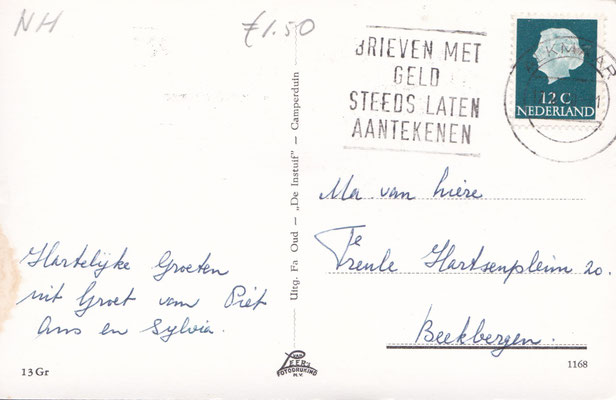 NH
£1.50
BRIEVEN MET
GELD
STEEDS LATEN
AANTEKENEN
ALKMAAR
12 C
NEDERLAND
Uitg. Fa Oud — „De Instuif" — Camperduin
Ma van hiere
Te
Treule Hartsenpleim 20.
Beekbergen.
Hartelijke Groeten
uit Groet van Piet
Ans en Sylvia.
13 Gr
VAN LEER's
FOTODRUKIND
N.V.
1168